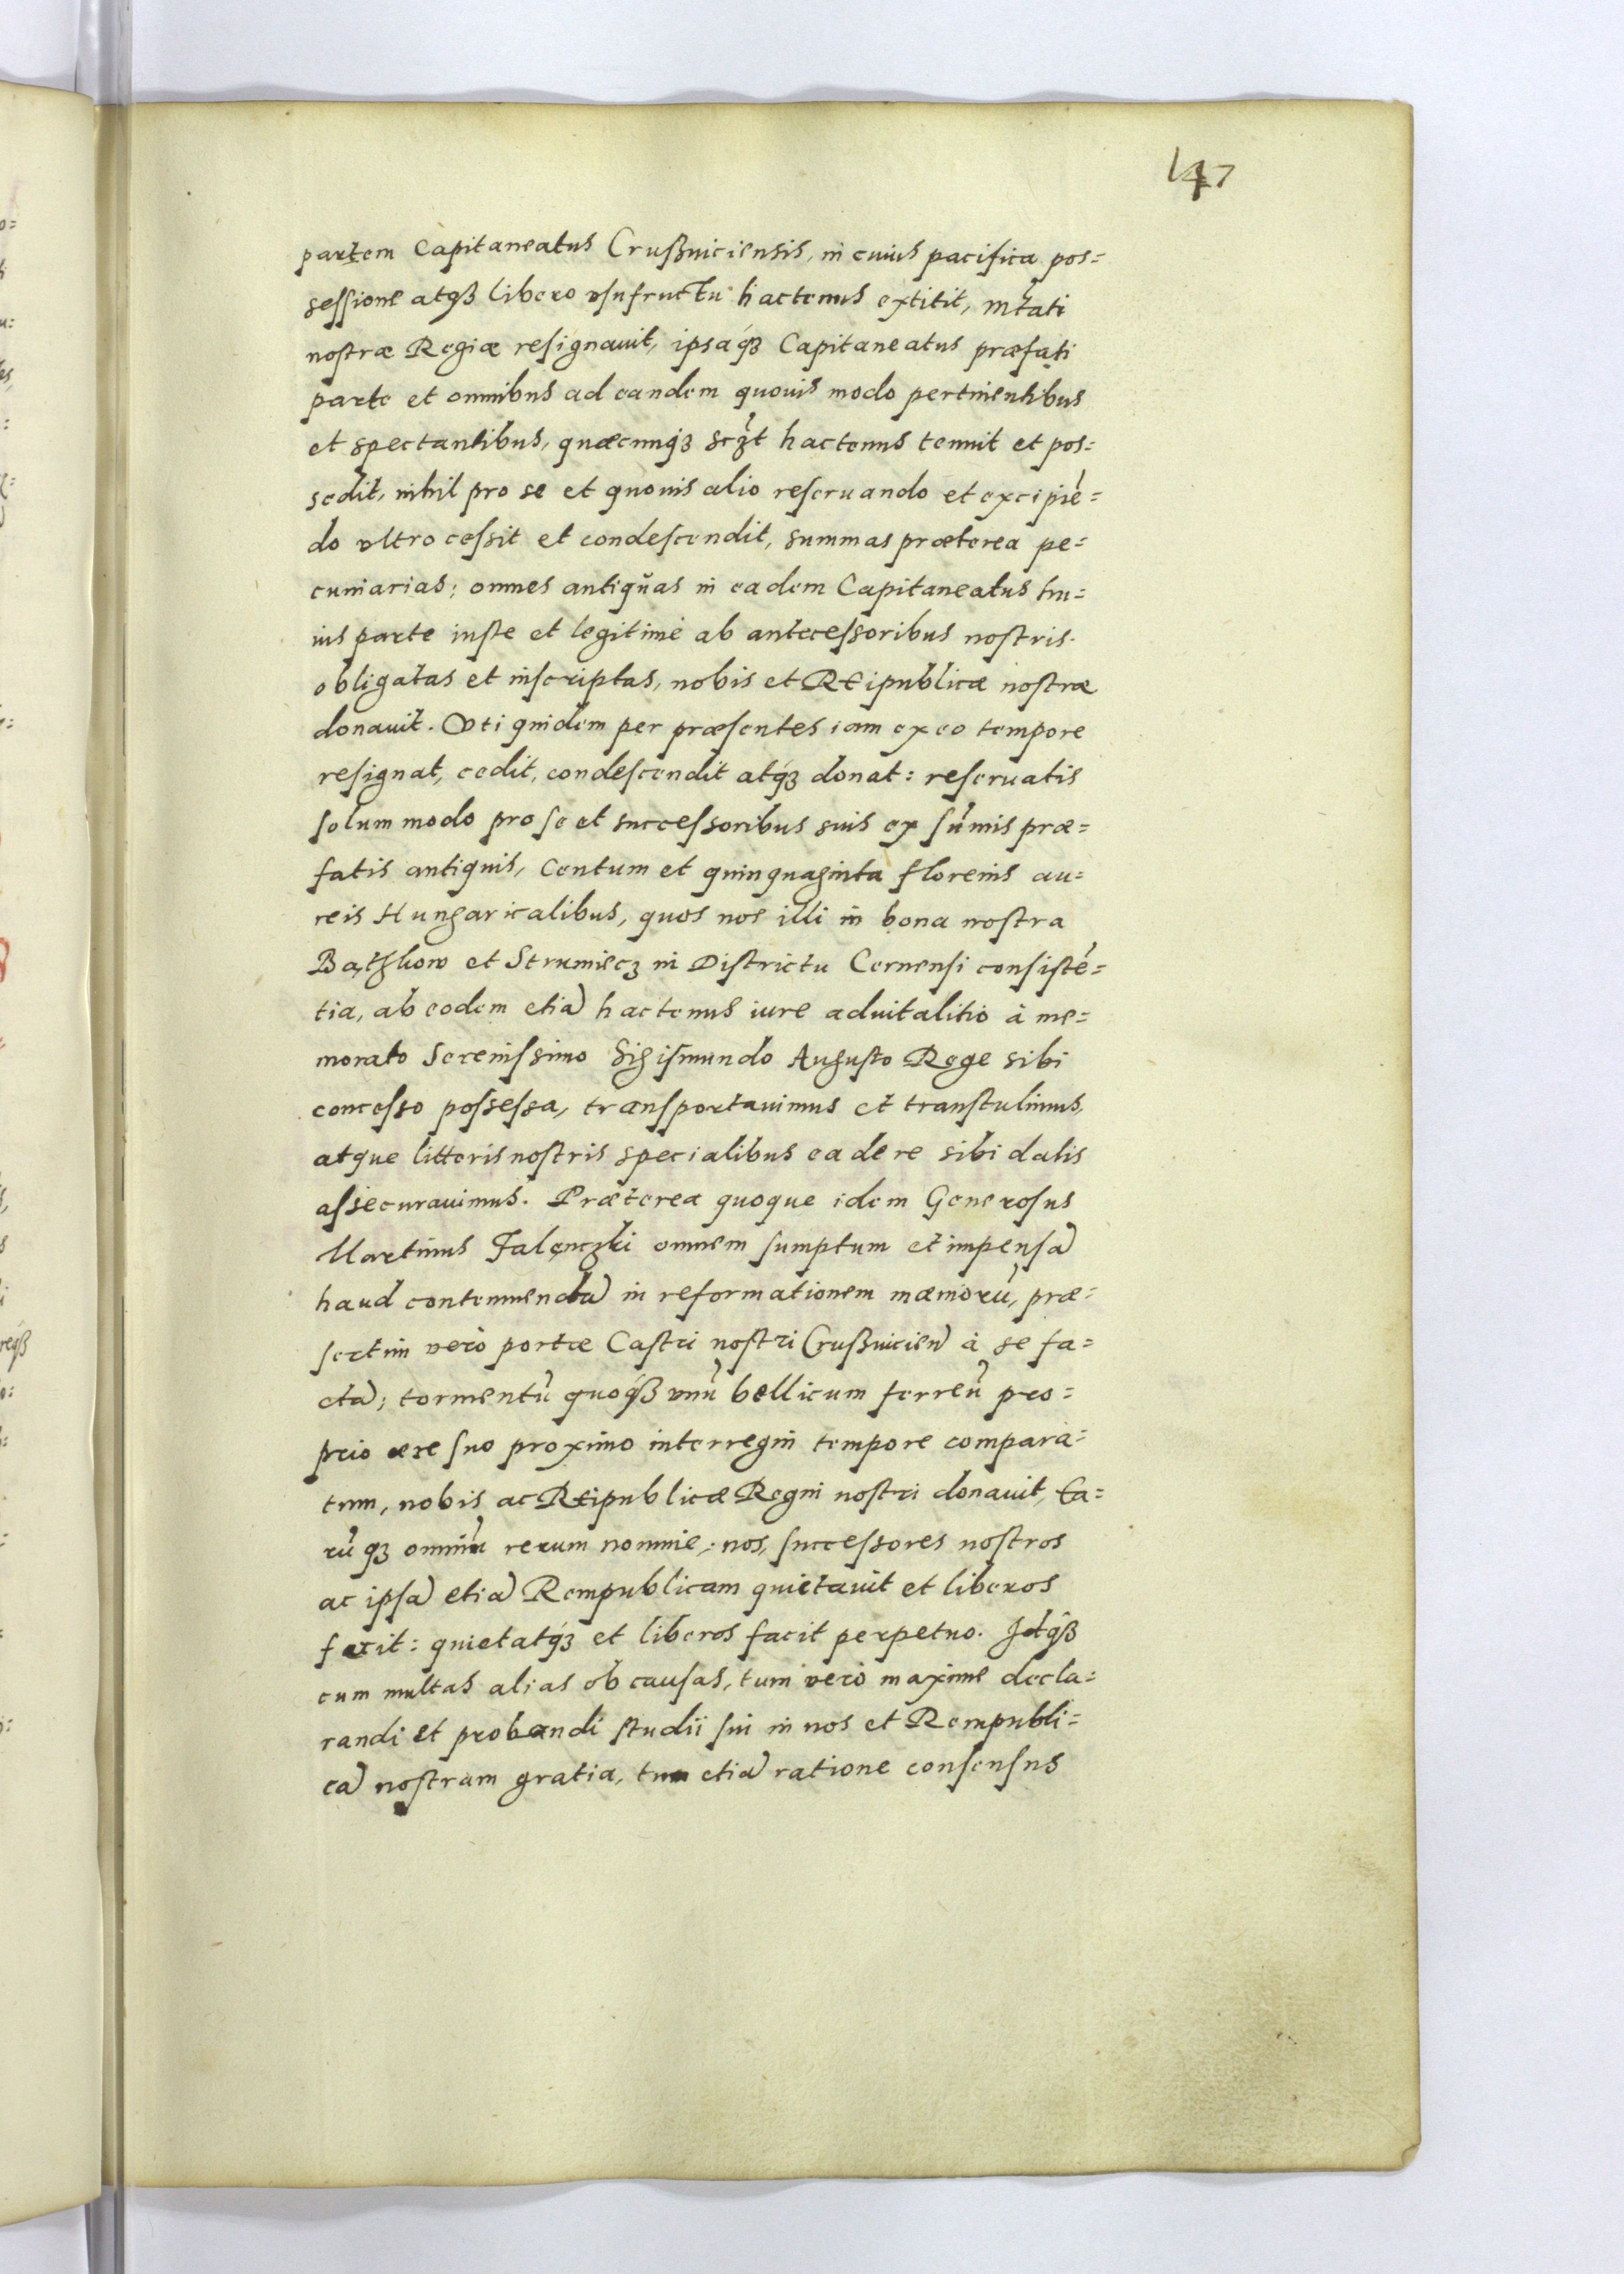 147
partem Capitaneatus Crußuiciensis, in cuius pacifica pos=
sessione atqȝ libero vsufructu hactenus extitit, Mtati
nostræ Regiæ resignauit, ipsaqȝ Capitaneatus præfati
parte et omnibus ad eandem quouis modo pertinentibus
et spectantibus, quæcunqȝ scȝt hactenus tenuit et pos=
sedit, nihil pro se et quouis alio reseruando et excipiē=
do vltro cessit et condescendit, summas præterea pe=
cuniarias, omnes antiquas in eadem Capitaneatus hu=
ius parte iuste et legitimè ab antecessoribus nostris
obligatas et inscriptas, nobis et Reipublicæ nostræ
donauit. Vti quidem per præsentes iam ex eo tempore
resignat, cedit, condescendit atqȝ donat: reseruatis
solummodo pro se et successoribus suis ex sūmis præ=
fatis antiquis, Centum et quinquaginta florenis au=
reis Hungaricalibus, quos nos illi in bona nostra
et Strumiecz in Districtu Cernensi consistē=
tia, ab eodem etiā hactenus iure aduitalitio à me=
morato Serenissimo Sigismundo Augusto Rege sibi
concesso possessa, transportauimus et transtulimus,
atque litteris nostris specialibus ea de re sibi datis
assecurauimus. Præterea quoque idem Generosus
Martinus Falęnczki omnem sumptum et impensā
haud contemnendā in reformationem mæniorū, præ=
sertim verò portæ Castri nostri Crußuicien à se fa=
ctā; tormentū quoqȝ vnū bellicum ferreū pro=
prio ære suo proximo interregni tempore compara=
tum, nobis ac Reipublicæ Regni nostri donauit, Ea=
rūqȝ omniū rerum nomine, nos, successores nostros
ac ipsā etiā Rempublicam quietauit et liberos
fecit: quietatqȝ et liberos facit perpetuo. Idqȝ
cum multas alias ob causas, tum verò maxime decla=
randi et probandi studii sui in nos et Rempubli=
cā nostram gratia, tum etiā ratione consensus